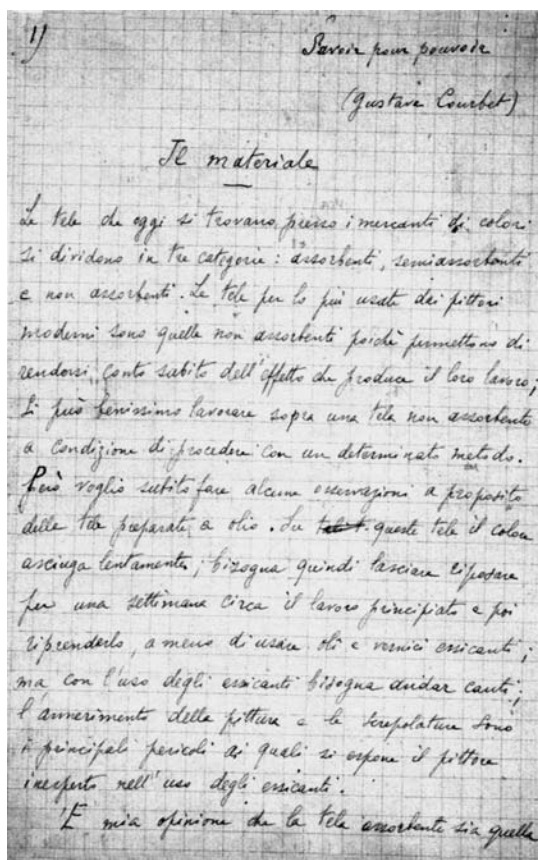 1)
Savoir pour pouvoir
(Gustave Courbet)
Il materiale
Le tele che oggi si trovano presso i mercanti di colori
si dividono in tre categorie: assorbenti, semiassorbenti
e non assorbenti. Le tele per lo più usate dai pittori
moderni sono quelle non assorbenti poichè permettono di
rendersi conto subito dell'effetto che produce il loro lavoro;
Si può benissimo lavorare sopra una tela non assorbente
a condizione di procedere con un determinato metodo.
Però voglio subito fare alcune osservazioni a proposito
delle tele preparate a olio. Su queste tele il colore
asciuga lentamente; bisogna quindi lasciare riposare
per una settimana circa il lavoro principiato e poi
riprenderlo, a meno di usare oli e vernici essicanti;
ma con l'uso degli essicanti bisogna andar cauti;
l'annerimento della pittura e le screpolature sono
i principali pericoli ai quali si espone il pittore
inesperto nell'uso degli essicanti.
E mia opinione che la tela assorbente sia quella